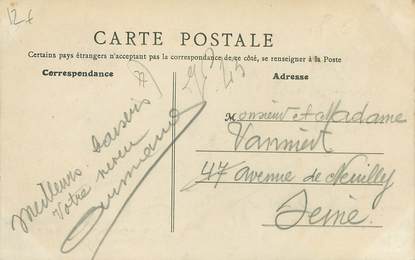 12f
CARTE POSTALE
Certains pays étrangers n'acceptant pas la correspondance de ce côté, se renseigner à la Poste
Correspondance
Adresse
Meilleurs baisers
Votre neveu
Monsieur et Madame
47 avenue de Neuilly
Seine